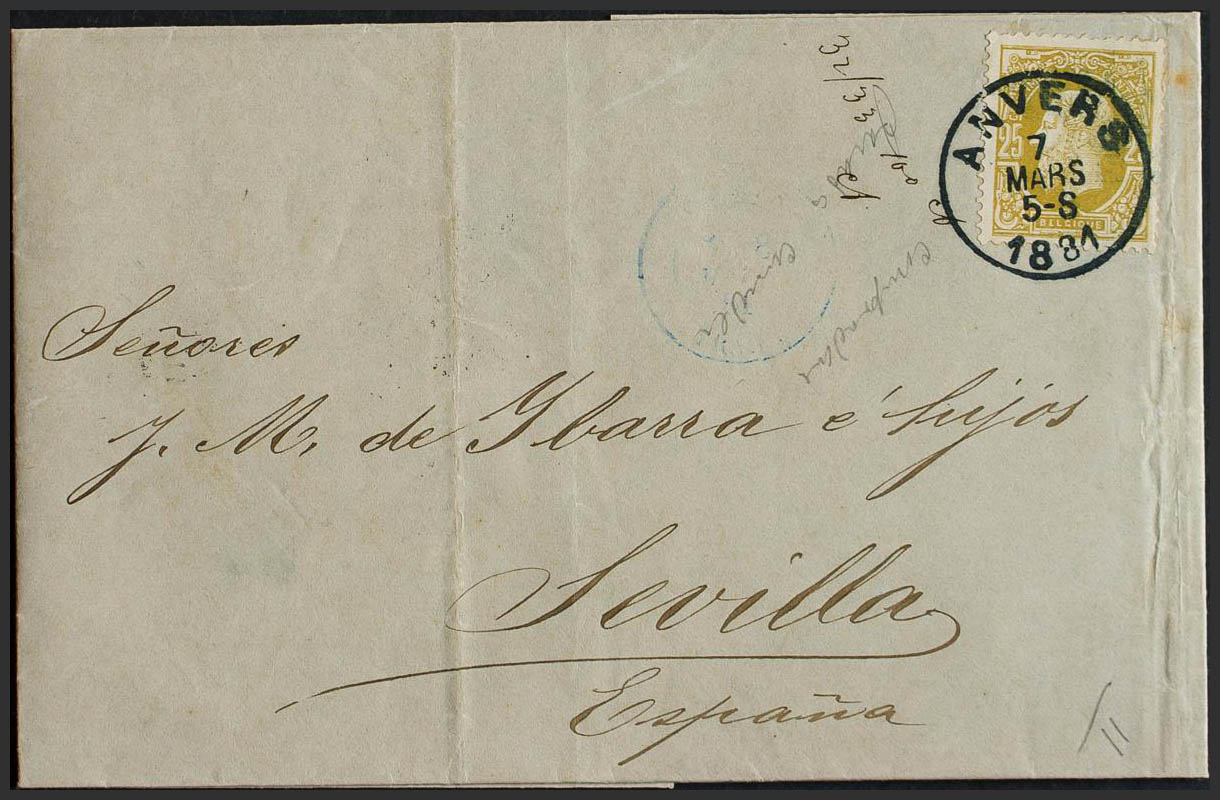 ANVERS
7
MARS
5-S
1881
25
BELGIQUE
Señores
J. M. de Ybarra é hijos
Sevilla
España
11